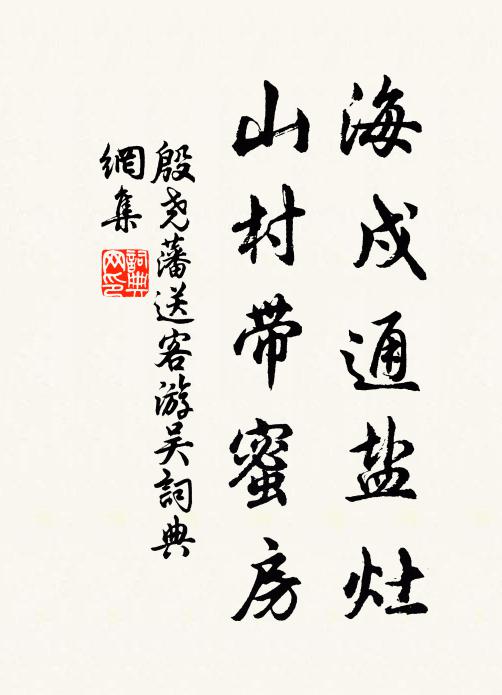 海戍通盐灶
山村带蜜房
殷尧藩送客游吴词典
網集
詞典
网印